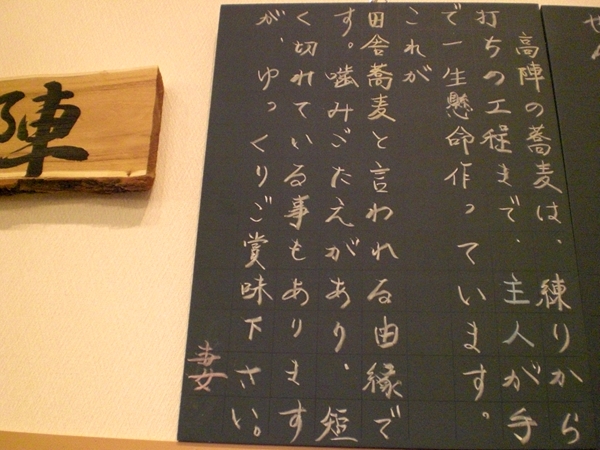 せん
高陣の蕎麦は、練りから
打ちの工程まで、主人が手
で一生懸命作っています。
これが
田舎蕎麦と言われる由縁で
す。噛みごたえがあり、短
く切れている事もあります
が、ゆっくりご賞味下さい。
妻
陣